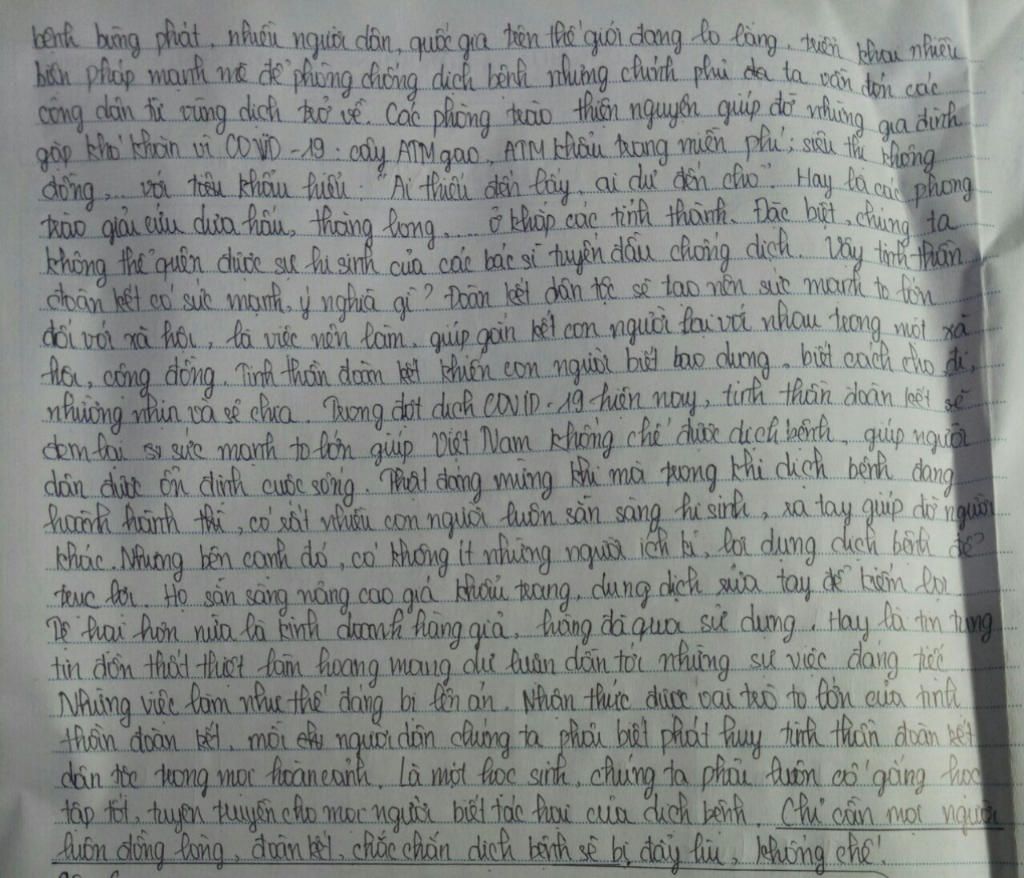 bệnh bùng phát, nhiều người dân, quốc gia trên thế giới đang lo lắng, triển khai nhiều
biện pháp mạnh mẽ để phòng chống dịch bệnh nhưng chính phủ ta vẫn đón các
công dân từ vùng dịch trở về. Các phong trào thiện nguyện giúp đỡ những gia đình
gặp khó khăn vì COVID-19: cây ATM gạo, ATM khẩu trang miễn phí; siêu thị không
đồng,... với tiêu khẩu hiệu: "Ai thiếu đến lấy, ai dư đến cho". Hay là các phong
trào giải cứu dưa hấu, thăng long,... ở khắp các tỉnh thành. Đặc biệt, chúng ta
không thể quên được sự hi sinh của các bác sĩ tuyến đầu chống dịch. Vậy tinh thần
đoàn kết có sức mạnh, ý nghĩa gì? Đoàn kết dân tộc sẽ tạo nên sức mạnh to lớn
đối với xã hội, là việc nên làm, giúp gắn kết con người lại với nhau trong một xã
hội, cộng đồng. Tinh thần đoàn kết khiến con người biết bao dung, biết cách cho đi,
nhường nhịn và sẻ chia. Trong đợt dịch COVID-19 hiện nay, tinh thần đoàn kết sẽ
đem lại sự sức mạnh to lớn giúp Việt Nam khống chế được dịch bệnh, giúp người
dân được ổn định cuộc sống. Thật đáng mừng khi mà trong khi dịch bệnh đang
hoành hành thì, có rất nhiều con người luôn sẵn sàng hi sinh, ra tay giúp đỡ người
khác. Nhưng bên cạnh đó, có không ít những người ích kỉ, lợi dụng dịch bệnh để
trục lợi. Họ sẵn sàng nâng cao giá khẩu trang, dung dịch rửa tay để kiếm lợi
Tệ hại hơn nữa là kinh doanh hàng giả, hàng đã qua sử dụng. Hay là tin tung
tin đồn thất thiệt làm hoang mang dư luận dẫn tới những sự việc đáng tiếc
Những việc làm như thế đáng bị lên án. Nhận thức được vai trò to lớn của tinh
thần đoàn kết, mỗi người dân chúng ta phải biết phát huy tinh thần đoàn kết
dân tộc trong mọi hoàn cảnh. Là một học sinh, chúng ta phải luôn cố gắng học
tập tốt, tuyên truyền cho mọi người biết tác hại của dịch bệnh. Chỉ cần mọi người
luôn đồng lòng, đoàn kết, chắc chắn dịch bệnh sẽ bị đẩy lùi, khống chế!